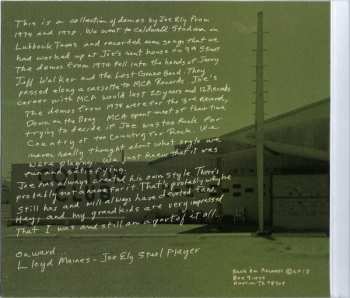 This is a collection of demos by Joe Ely from
1974 and 1978. We went to Caldwell Studios in
Lubbock Texas and recorded some songs that we
had worked up at Joe's rent house on 49th Street
The demos from 1974 fell into the hands of Jerry
Jeff Walker and the Lost Gonzo Band. They
passed along a cassette to MCA Records Joe's
career with MCA would last 20 years and 12 Records
The demos from 1978 were for the 3rd Record,
Down on the Drag MCA spent most of their time
trying to decide if Joe was too Rock for
Country or too Country for Rock. We
never really thought about what style we
were playing. We just knew that it was
fun and satisfying.
Joe has always created his own style. There's
probably not a name for it. That's probably why he
Still has and will always have devoted fans.
Hey, and my grandkids are very impressed
That I was and still am a part of it all.
Onward
Lloyd Maines - Joe Ely Steel Player
Rack Em Records ©2018
Austin TX